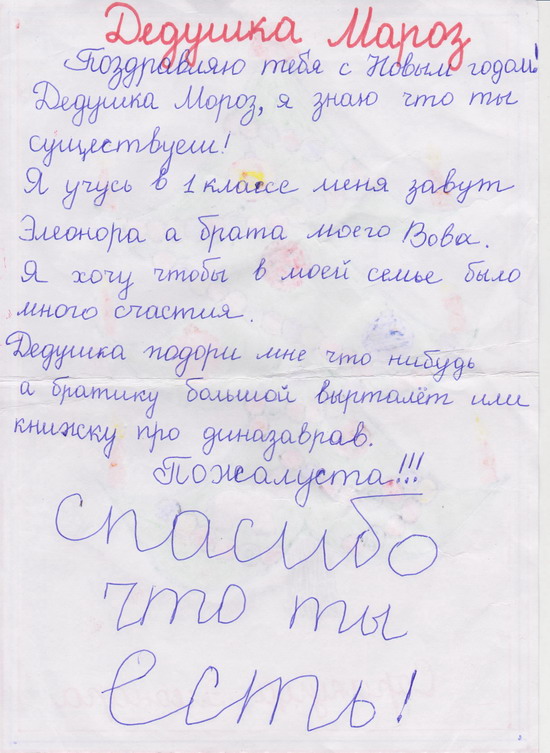 Дедушка Мароз
Поздравляю тебя с Новым годом!
Дедушка Мороз, я знаю что ты
существуеш!
Я учусь в 1 классе меня завут
Элеонора а брата моего Вова.
Я хочу чтобы в моей семье было
много счастия.
Дедушка подори мне что нибудь
а братику большой вырталёт или
книжку про диназаврав.
Пожалуста!!!
спасибо
что ты
есть!